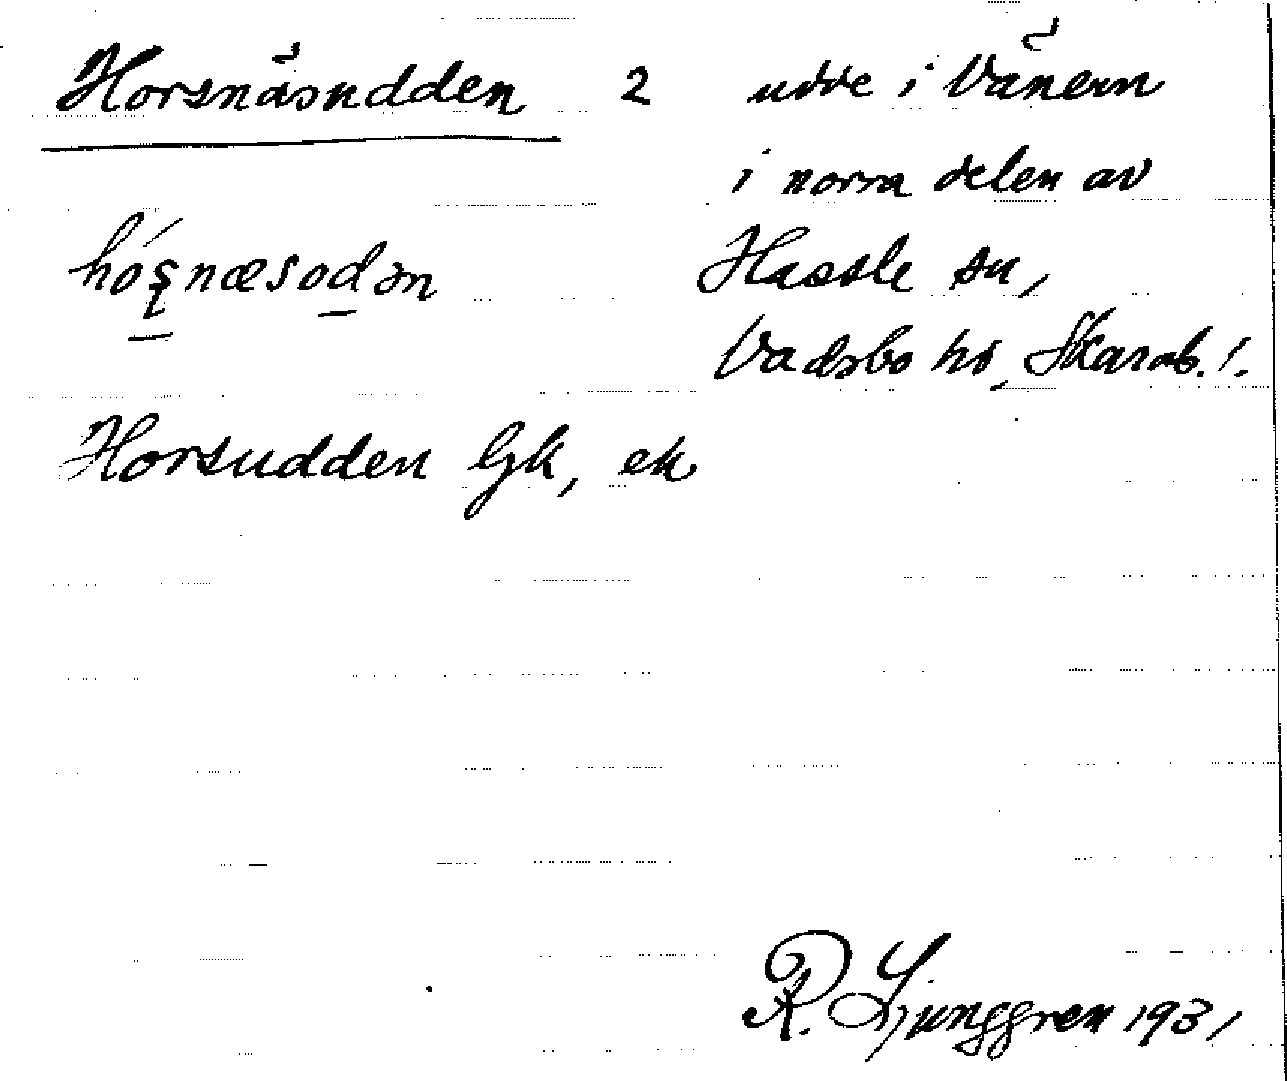 Horsnäsudden 2 udde i Vänern
i norra delen av
hósnæsodən Hassle sn,
Vadsbo hd, Skarab. l.
Horsudden Gk, ek
R. Ljunggren 1931